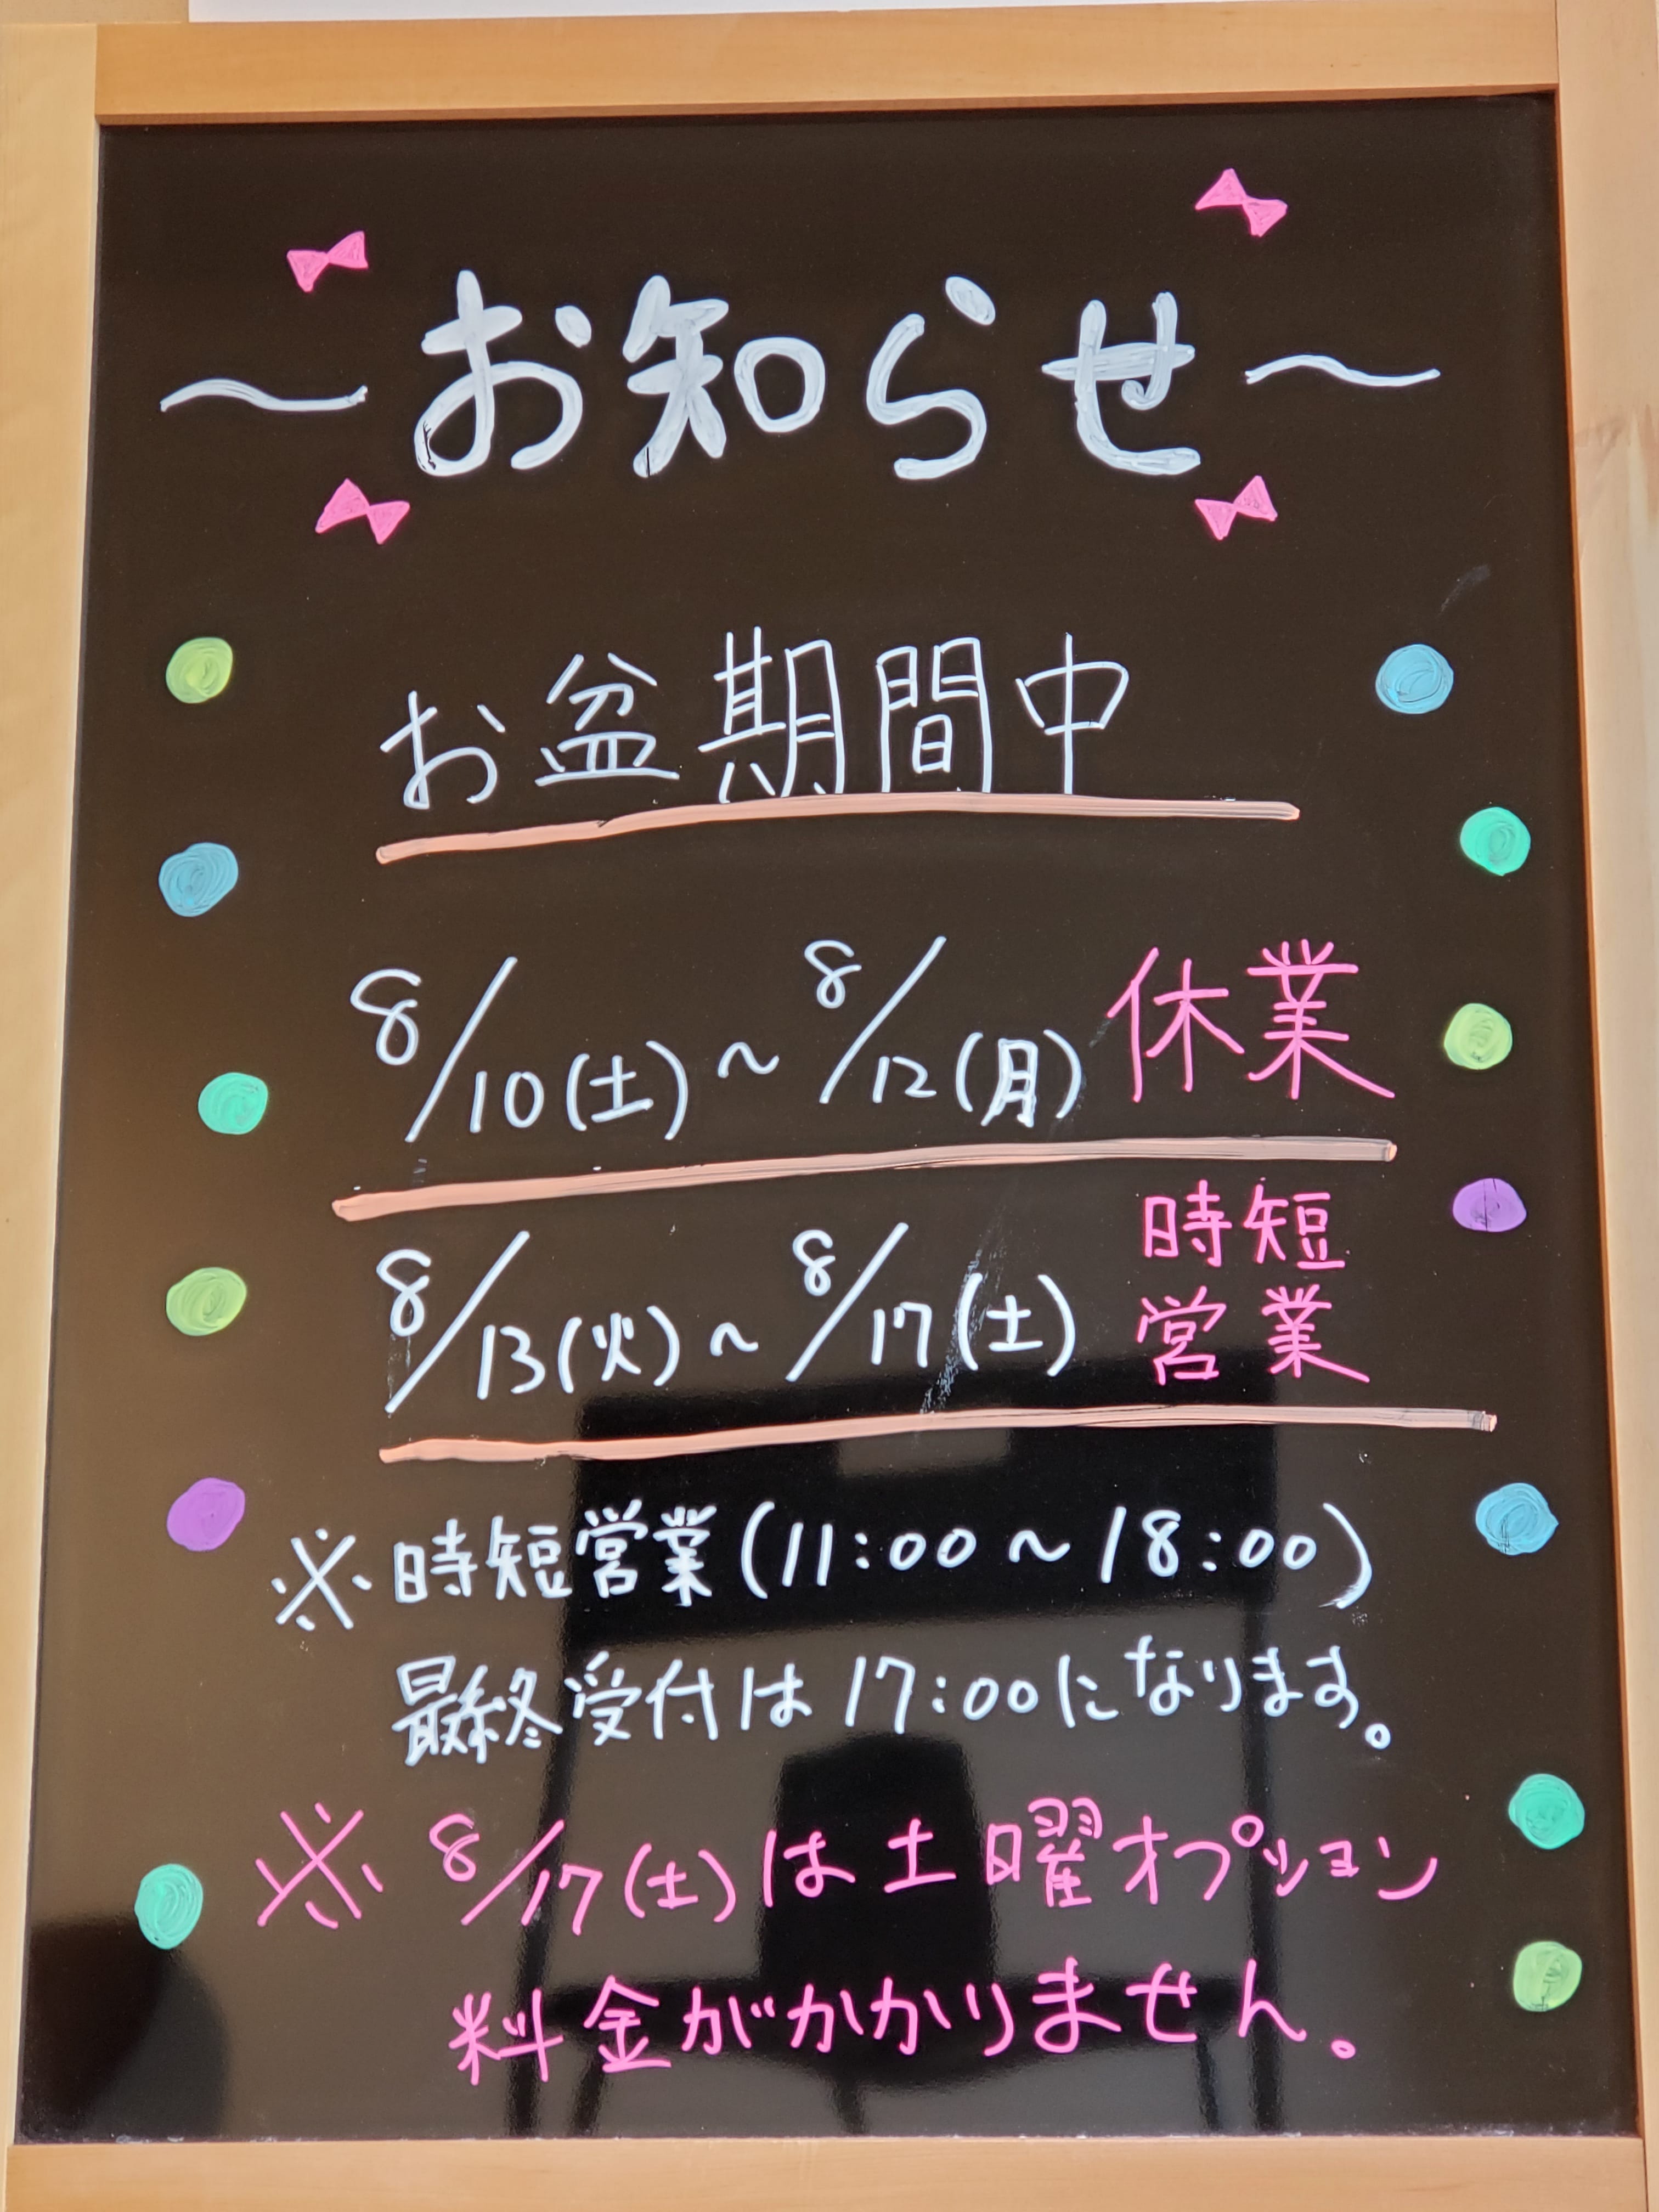 ～お知らせ～
お盆期間中
8/10(土)～8/12(月) 休業
8/13(火)～8/17(土) 時短
営業
※時短営業(11:00～18:00)
最終受付は17:00になります。
※8/17(土)は土曜オプション
料金がかかりません。